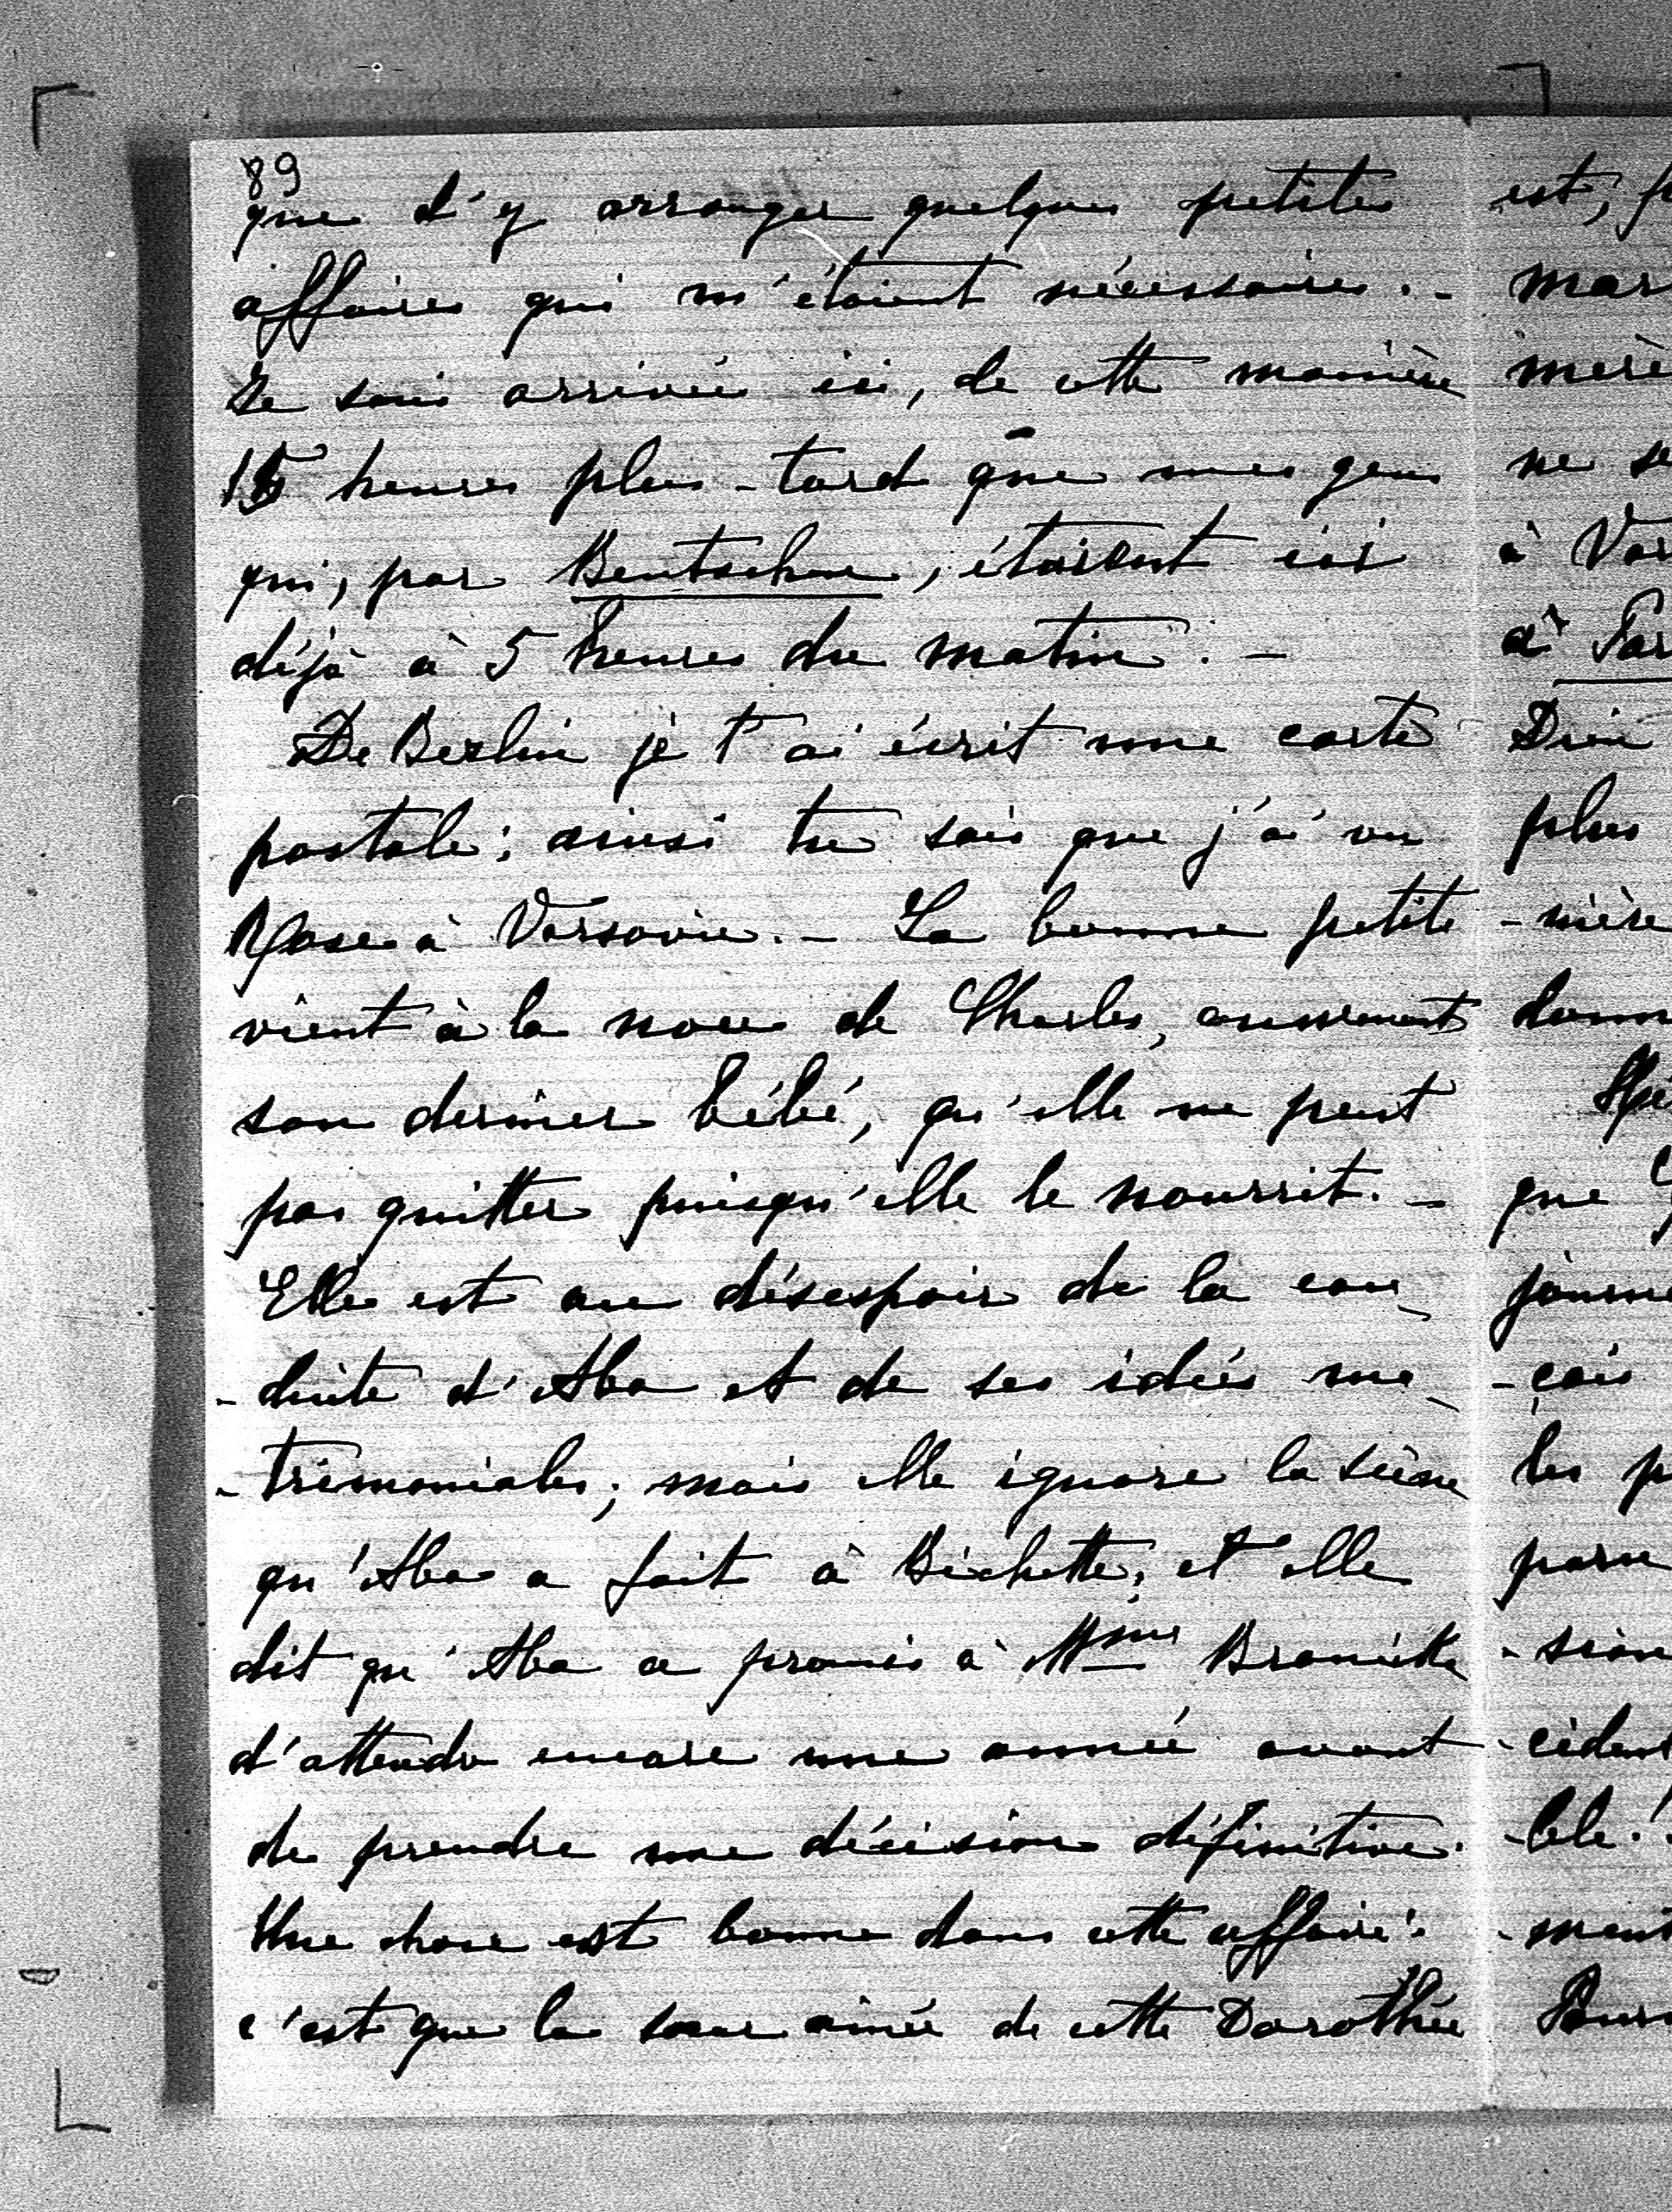 89
que d'y arranger quelques petites
affaires qui m'étaient nécessaires. -
Je suis arrivée ici, de cette manière
heures plus-tard que mes gens
qui, par Bentschen, étaient ici
déjà à 5 heures du matin. -
De Berlin je t'ai écrit une carte
postale; ainsi tu sais que j'ai vu
Rose à Varsovie. - La bonne petite
vient à la noce de Charles,
son dernier bébé, qu'elle ne peut
pas quitter puisqu'elle le nourrit. -
Elle est au désespoir de la con-
-duite d'Aba et de ses idées ma-
-trimoniales; mais elle ignore la scène
qu'Aba a fait à Bichette; et elle
dit qu'Aba a promis à Mme Branicka
d'attendre encore une année avant
de prendre une décision définitive.
Une chose est bonne dans cette affaire:
c'est que la sœur ainée de cette Dorothée
est,
mar
merè
ne se
à Var
à Par
Dieu
plus
-mière
donn
que
journé
-çais
les p
paru
-sion
-cident
-ble!
-ment
Pour